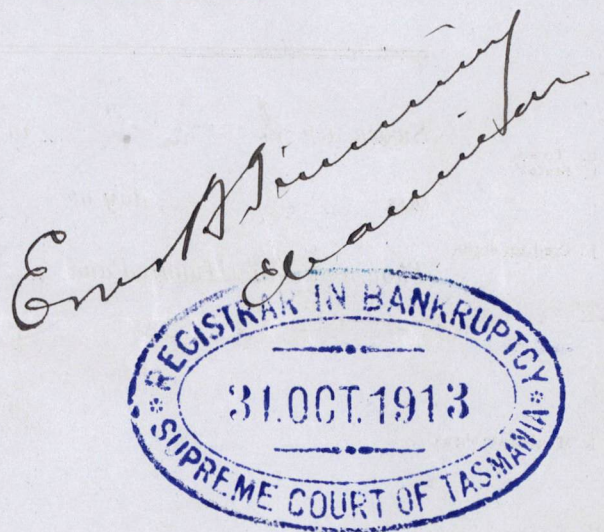 Ernest
Examiner
REGISTRAR IN BANKRUPTCY
31.OCT.1913
SUPREME COURT OF TASMANIA